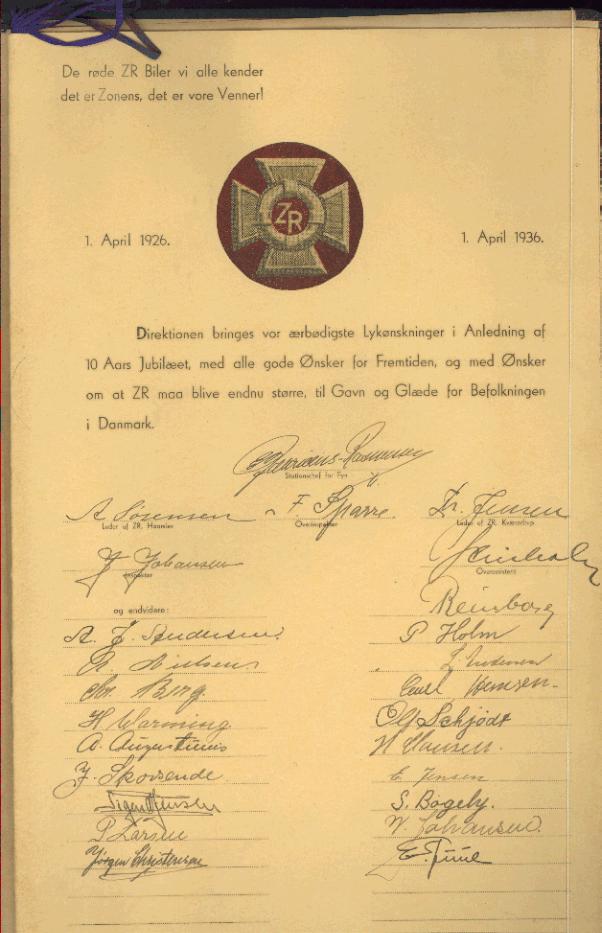 De røde ZR Biler vi alle kender
det er Zonens, det er vore Venner!
ZR
1. April 1926.
1. April 1936.
Direktionen bringes vor ærbødigste Lykønskninger i Anledning af
10 Aars Jubilæet, med alle gode Ønsker for Fremtiden, og med Ønsker
om at ZR maa blive endnu større, til Gavn og Glæde for Befolkningen
i Danmark.
Stationschef for Fyn
A. Sørensen F. Sparre. Fr. Jensen
Leder af ZR. Haarslev Overinspektør Leder af ZR. Kværndrup
J. Johansen
Inspektør Overassistent
og endvidere:
Reinsborg
A. J. Andersen P Holm
Nielsen L. Andersen
Chr. Berg Carl Hansen.
H Warming Ole Schjødt
A. Augustinus H Hansen.
J. Skovsende E Jensen
Jensen S. Bøgely.
P Larsen V. Johansen.
Jørgen Christensen E. Juul